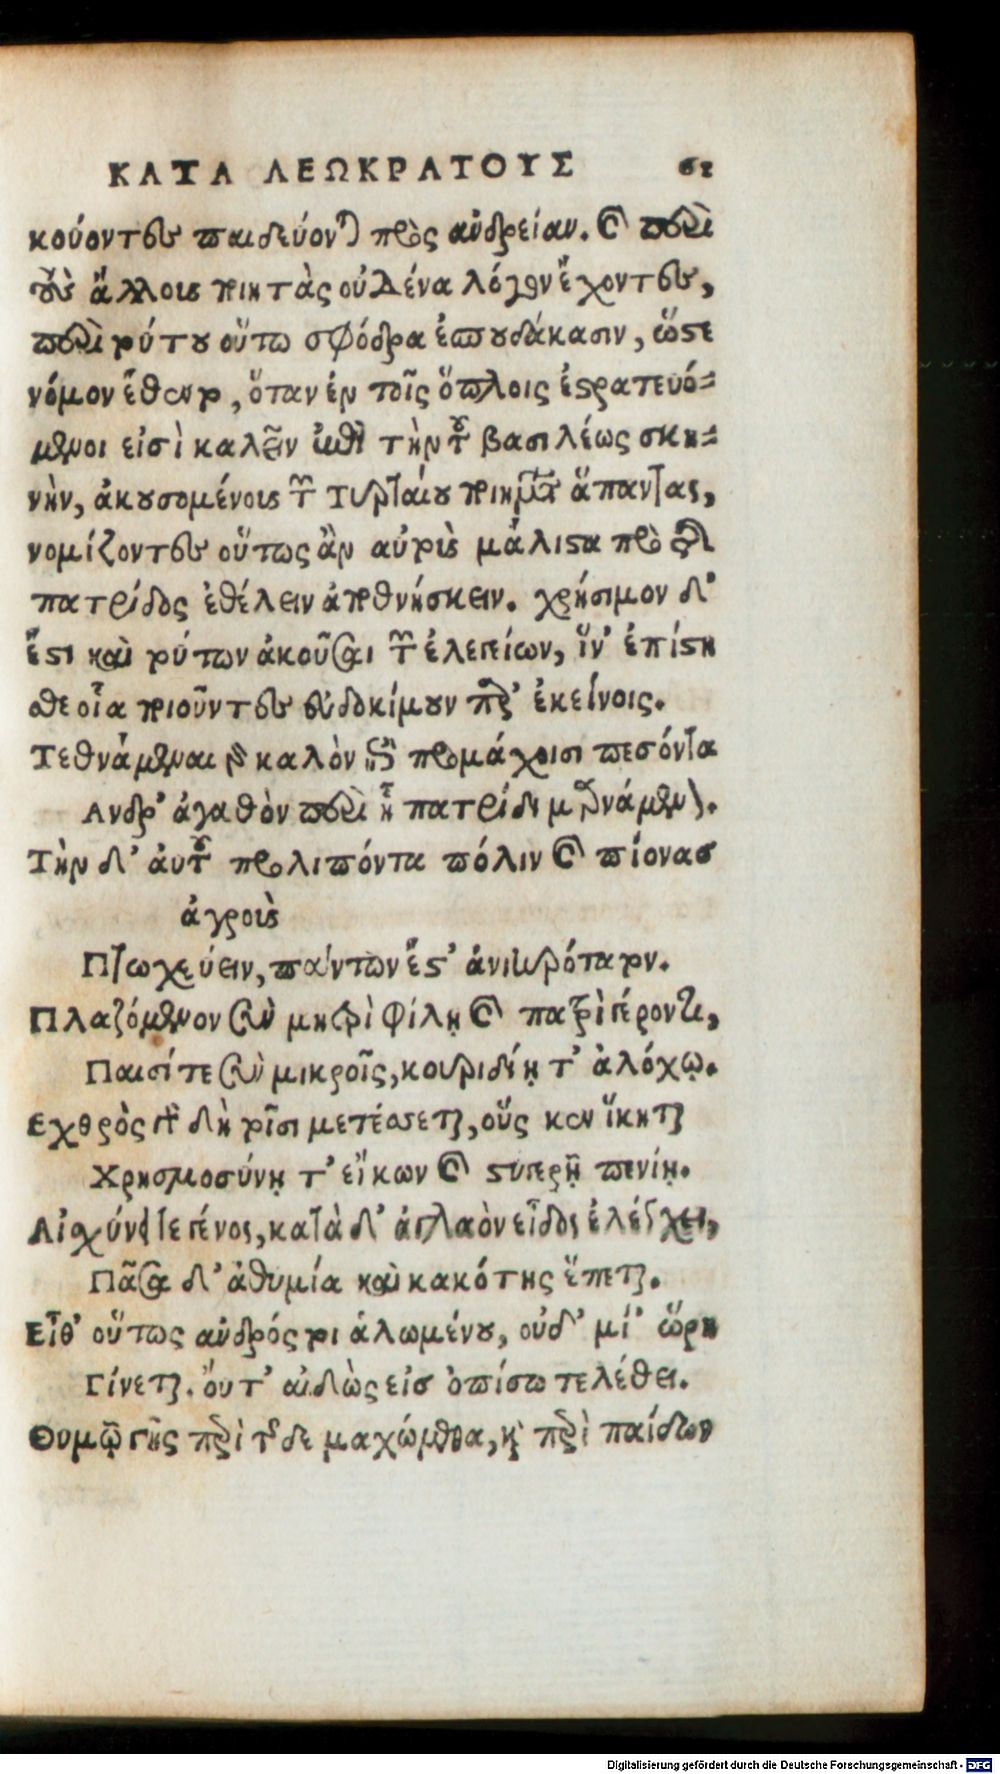 ΚΑΤΑ ΛΕΩΚΡΑΤΟΥΣ 61
κούοντες παιδεύονται πρὸς ἀνδρείαν. καὶ περὶ
τοὺς ἄλλους ποιητὰς οὐδένα λόγον ἔχοντες,
περὶ τούτου οὕτω σφόδρα ἐσπουδάκασιν, ὥστε
νόμον ἔθεντο, ὅταν ἐν τοῖς ὅπλοις ἐστρατευό-
μενοι εἰσὶ καλεῖν ἐπὶ τὴν τοῦ βασιλέως σκη-
νὴν, ἀκουσομένους τῶν Τυρταίου ποιημάτων ἅπαντας,
νομίζοντες οὕτως ἂν αὐτοὺς μάλιστα πρὸ τῆς
πατρίδος ἐθέλειν ἀποθνήσκειν. χρήσιμον δ'
ἔστι καὶ τούτων ἀκοῦσαι τῶν ἐλεγείων, ἵν' ἐπίστη
σθε οἷα ποιοῦντες εὐδοκίμουν παρ' ἐκείνοις.
Τεθνάμεναι γὰρ καλὸν ἐπὶ προμάχοισι πεσόντα
Ανδρ' ἀγαθὸν περὶ ᾗ πατρίδι μαρνάμενον.
Τὴν δ' αὐτοῦ προλιπόντα πόλιν καὶ πίονας
ἀγροὺς
Πτωχεύειν, πάντων ἔστ' ἀνιηρότατον.
Πλαζόμενον σὺν μητρὶ φίλῃ καὶ πατρὶ γέροντι,
Παισί τε σὺν μικροῖς, κουριδίῃ τ' ἀλόχῳ.
Εχθρὸς μὲν δὴ τοῖσι μετέσσεται, οὕς κεν ἵκηται
Χρησμοσύνῃ τ' εἴκων καὶ στυγερῇ πενίῃ.
Αἰσχύνει τε γένος, κατὰ δ' ἀγλαὸν εἶδος ἐλέγχει,
Πᾶσα δ' ἀθυμία καὶ κακότης ἕπεται.
Εἶθ' οὕτως ἀνδρός τοι ἀλωμένου, οὐδ' μί' ὥρη
Γίνεται. ὄυτ' αἰδὼς εἰσ ὀπίσω τελέθει.
Θυμῷ γῆς περὶ τῆςδε μαχώμεθα, καὶ περὶ παίδων
Digitalisierung gefördert durch die Deutsche Forschungsgemeinschaft - DFG